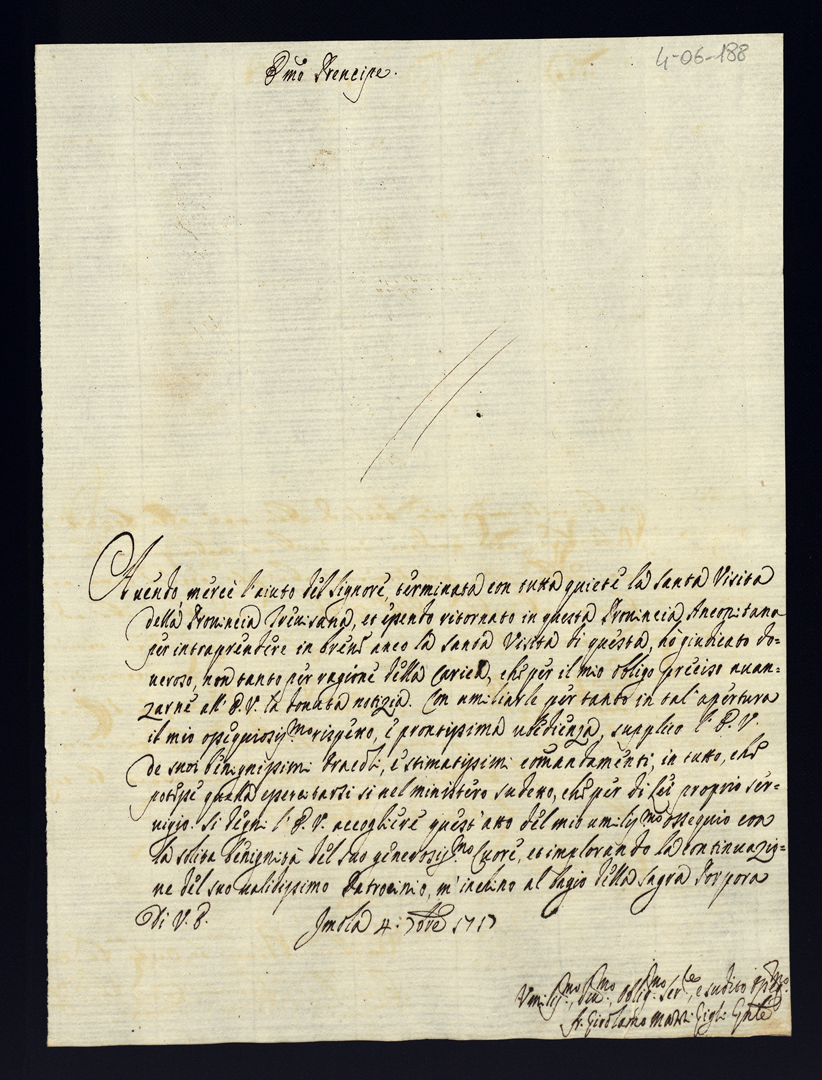 4-06-188
Em̃o Prencipe.
Auendo mercè l'aiuto del Signore, terminata con tutta quiete la Santa Visita
della Prouincia Treuisana, et essendo ritornato in questa Prouincia Anconitana
per intraprendere in breue anco la Santa Visita di questa, hò giudicato do=
ueroso, non tanto per ragione della Carica, che per il mio obligo preciso auan=
zarne all' E.V. la douuta notizia. Con umiliarle per tanto in tal' apertura
il mio ossequiosiss.mo rispetto, e prontissima ubedienza, supplico l' E.V.
de suoi benignissimi Oracoli, e stimatissimi comandamenti, in tutto, che
potesse quella esercitarsi si nel ministero sudetto, che per di Lei proprio ser=
uigio. Si degni l' E.V. accogliere quest' atto del mio umiliss.mo ossequio con
la solita benignità del suo generosiss.mo Cuore, et implorando la continuazio=
ne del suo ualidissimo Patrocinio, m' inchino al bagio della Sagra Porpora
Di V. E. Imola 4. 9bre 1717
Vmiliss.mo, Deu.mo, Oblig.mo Ser.re, e sudito osseq.mo
fr. Girolamo Gigli Gnle